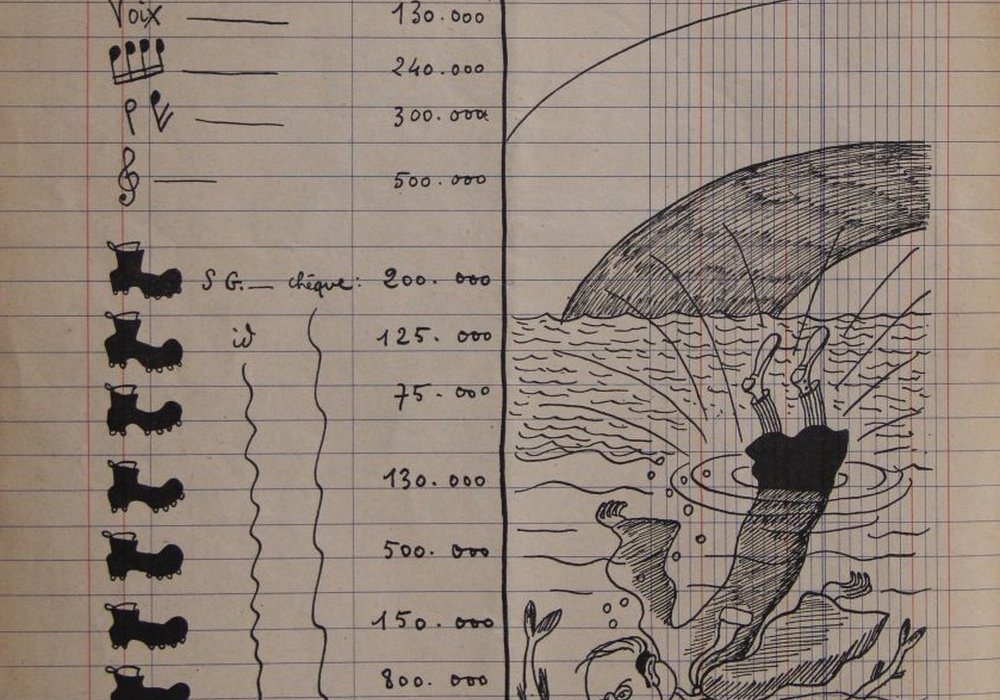 Voix 130.000
240.000
300.000
500.000
S G. — chèque: 200.000
id 125.000
75.000
130.000
500.000
150.000
800.000